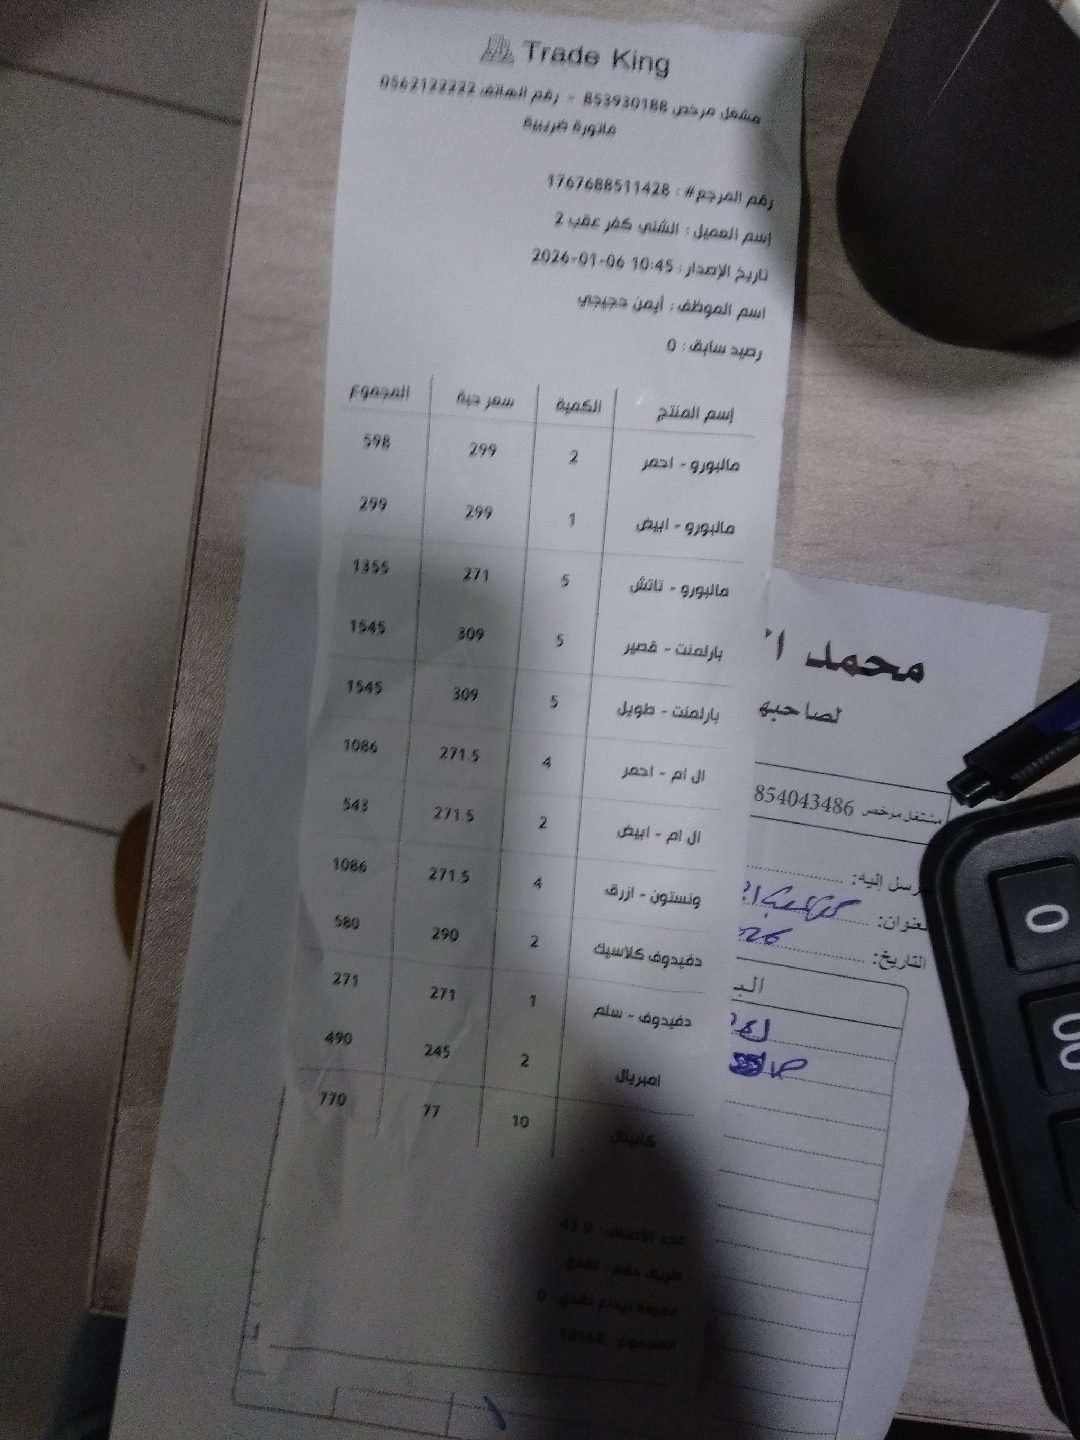 Trade King
مشغل مرخص 853930188 - رقم الهاتف 0562122222
فاتورة ضريبية
رقم المرجع# : 1767688511428
إسم العميل : الشني كفر عقب 2
تاريخ الإصدار : 10:45 2026-01-06
اسم الموظف : أيمن حجيجي
رصيد سابق : 0
إسم المنتج الكمية سعر حبة المجموع
مالبورو - احمر 2 299 598
مالبورو - ابيض 1 299 299
مالبورو - تاتش 5 271 1355
بارلمنت - قصير 5 309 1545
بارلمنت - طويل 5 309 1545
ال ام - احمر 4 271.5 1086
ال ام - ابيض 2 271.5 543
ونستون - ازرق 4 271.5 1086
دفيدوف كلاسيك 2 290 580
دفيدوف - سلم 1 271 271
امبريال 2 245 490
كابيتل 10 77 770
عدد الأصناف : 43.0
طريقة دفع : نقدي
عمولة ايداع نقدي : 0
المجموع : 10168
محمد
لصاحبها
مشتغل مرخص 854043486
المرسل إليه:
العنوان:
التاريخ:
0
00